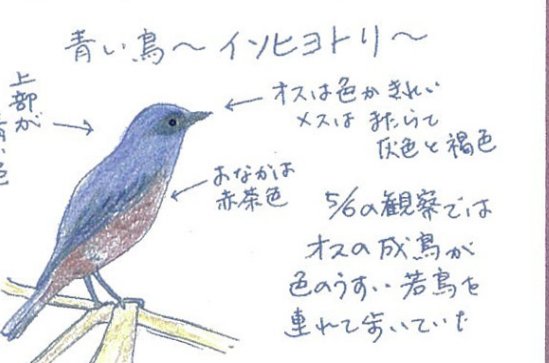 青い鳥〜イソヒヨトリ〜
上部が
青い色
オスは色がきれい
メスは まだらで
灰色と褐色
おなかは
赤茶色
5/6の観察では
オスの成鳥が
色のうすい若鳥を
連れて歩いていた